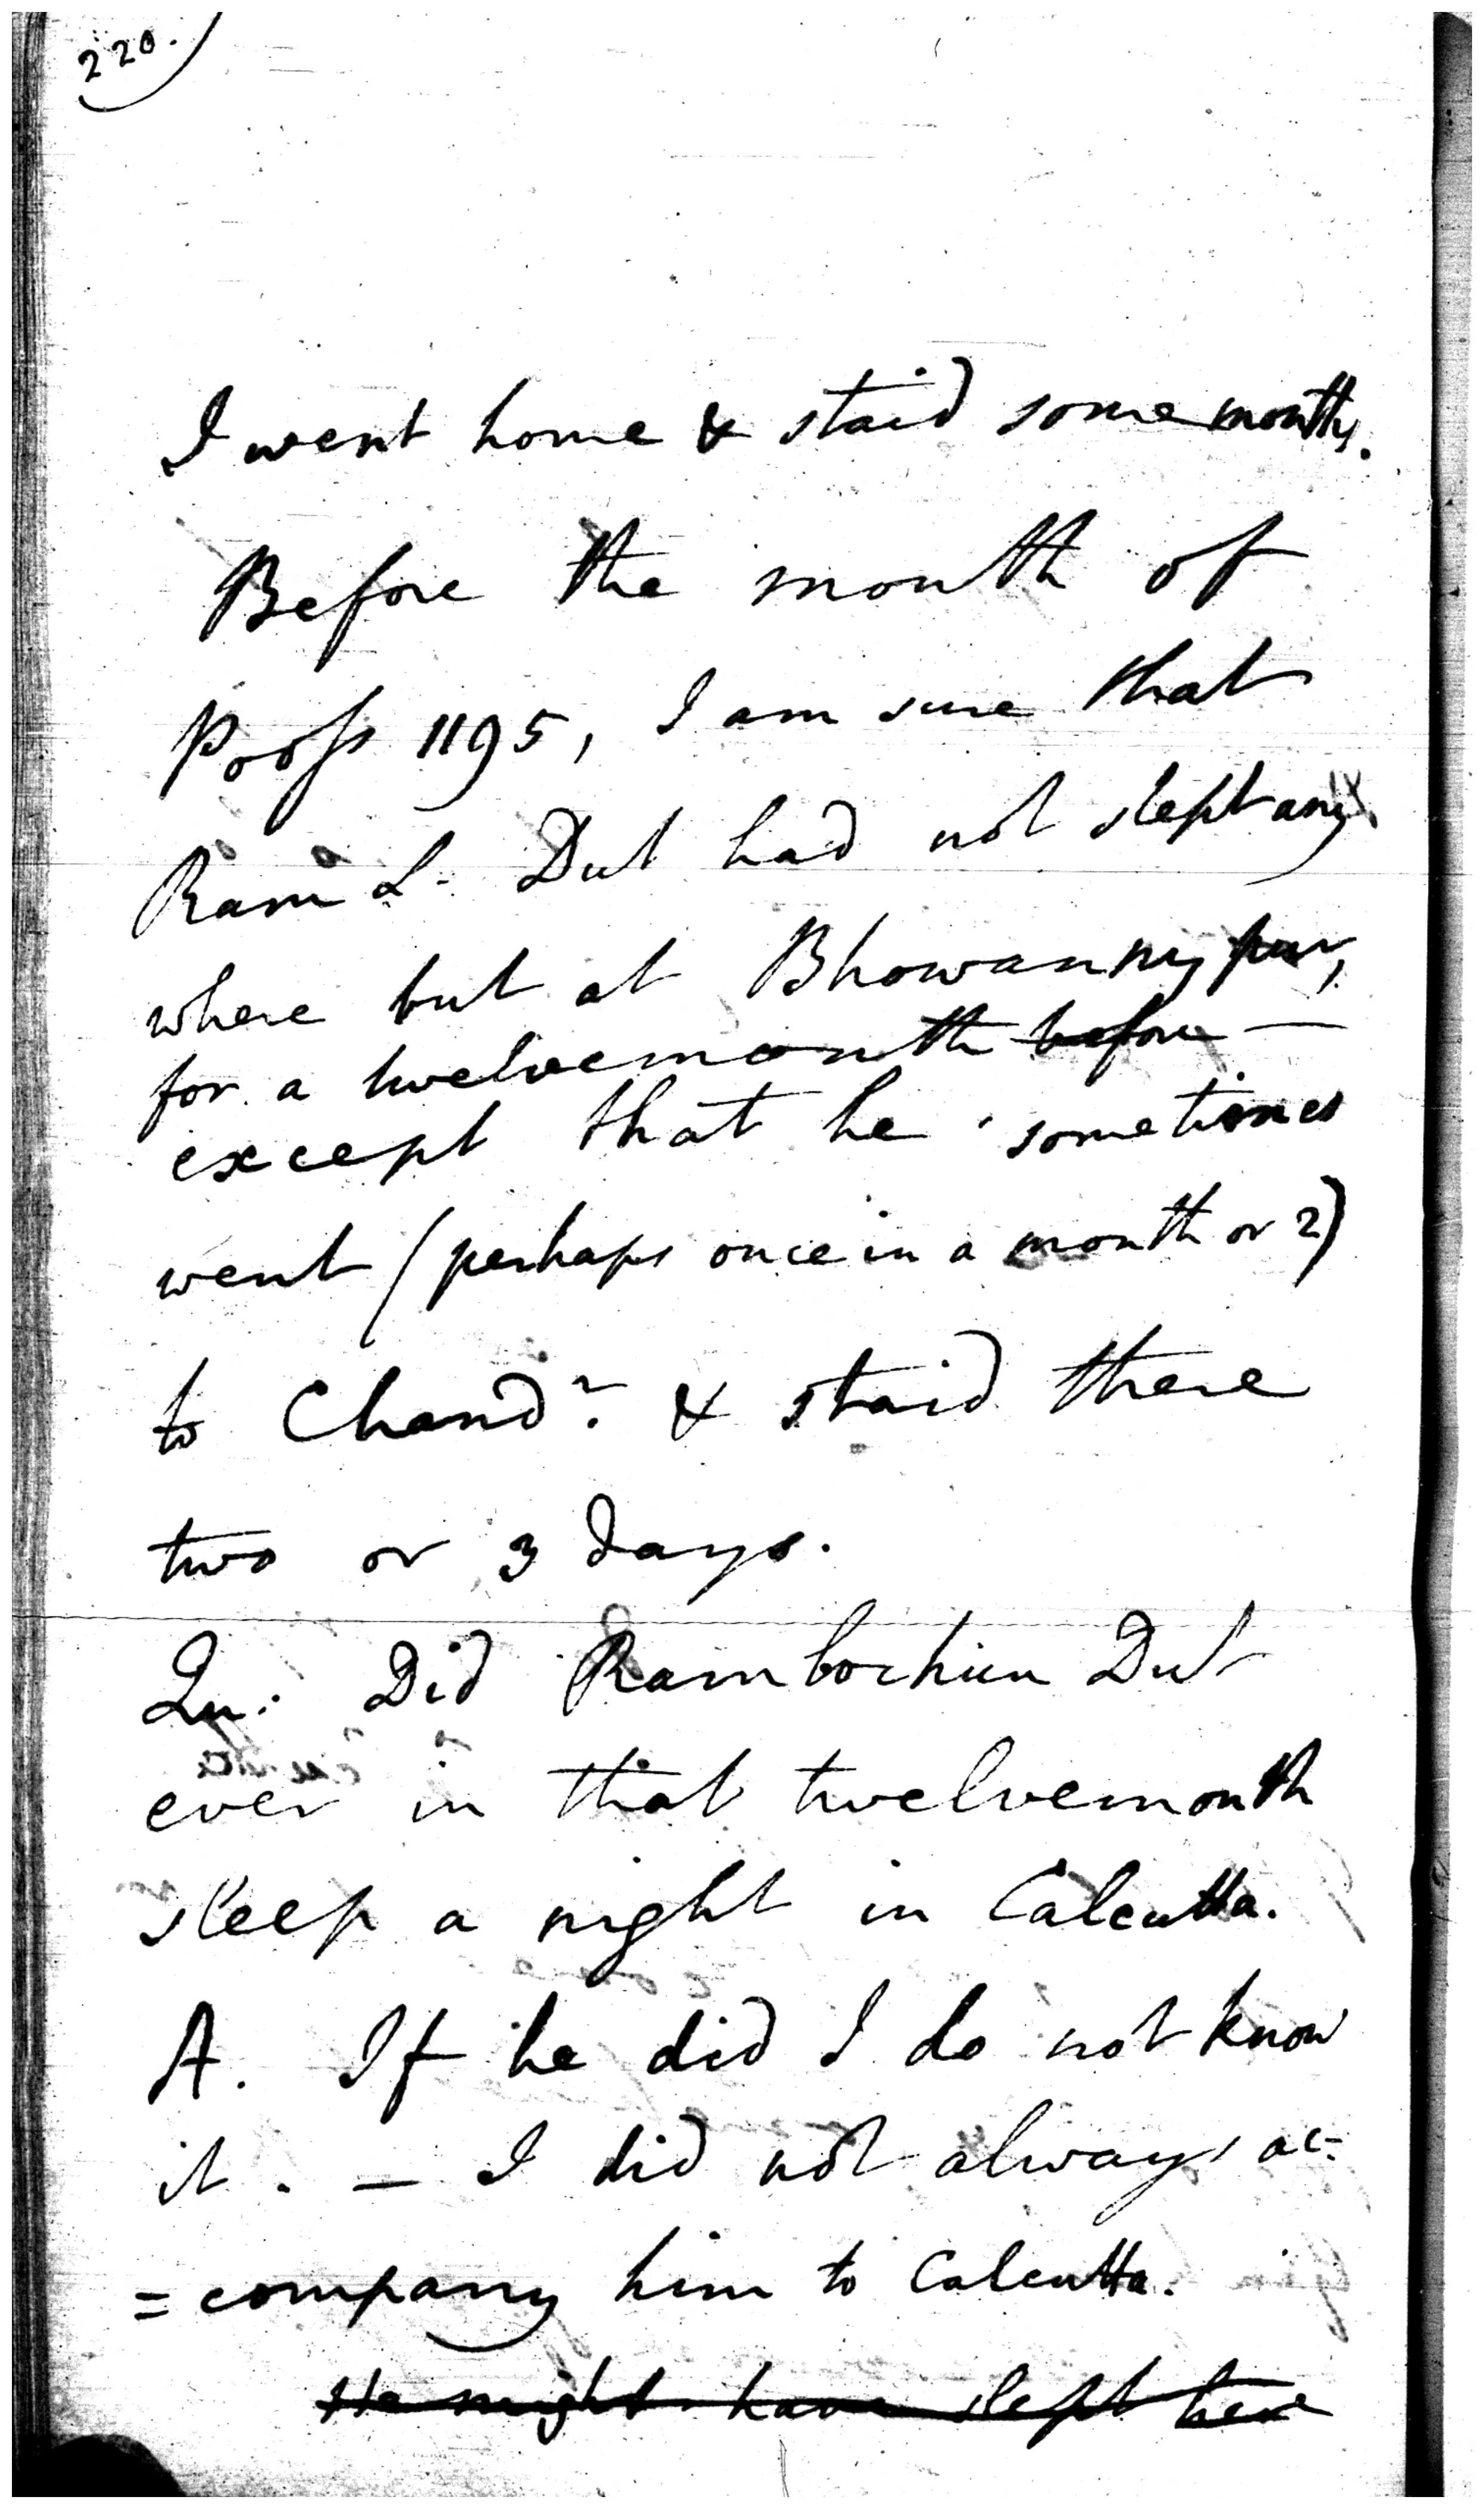 220.
I went home & staid some months.
Before the month of
Pooss 1195, I am sure that
Ram L. Dut had not slept any
where but at Bhowannypur,
for a twelvemonth before —
except that he sometimes
went (perhaps once in a month or 2)
to Chandr. & staid there
two or 3 days.
Qu: Did Ramlochun Dut
ever in that twelvemonth
sleep a night in Calcutta.
A. If he did I do not know
it. — I did not always ac-
=company him to Calcutta.
He might have slept here